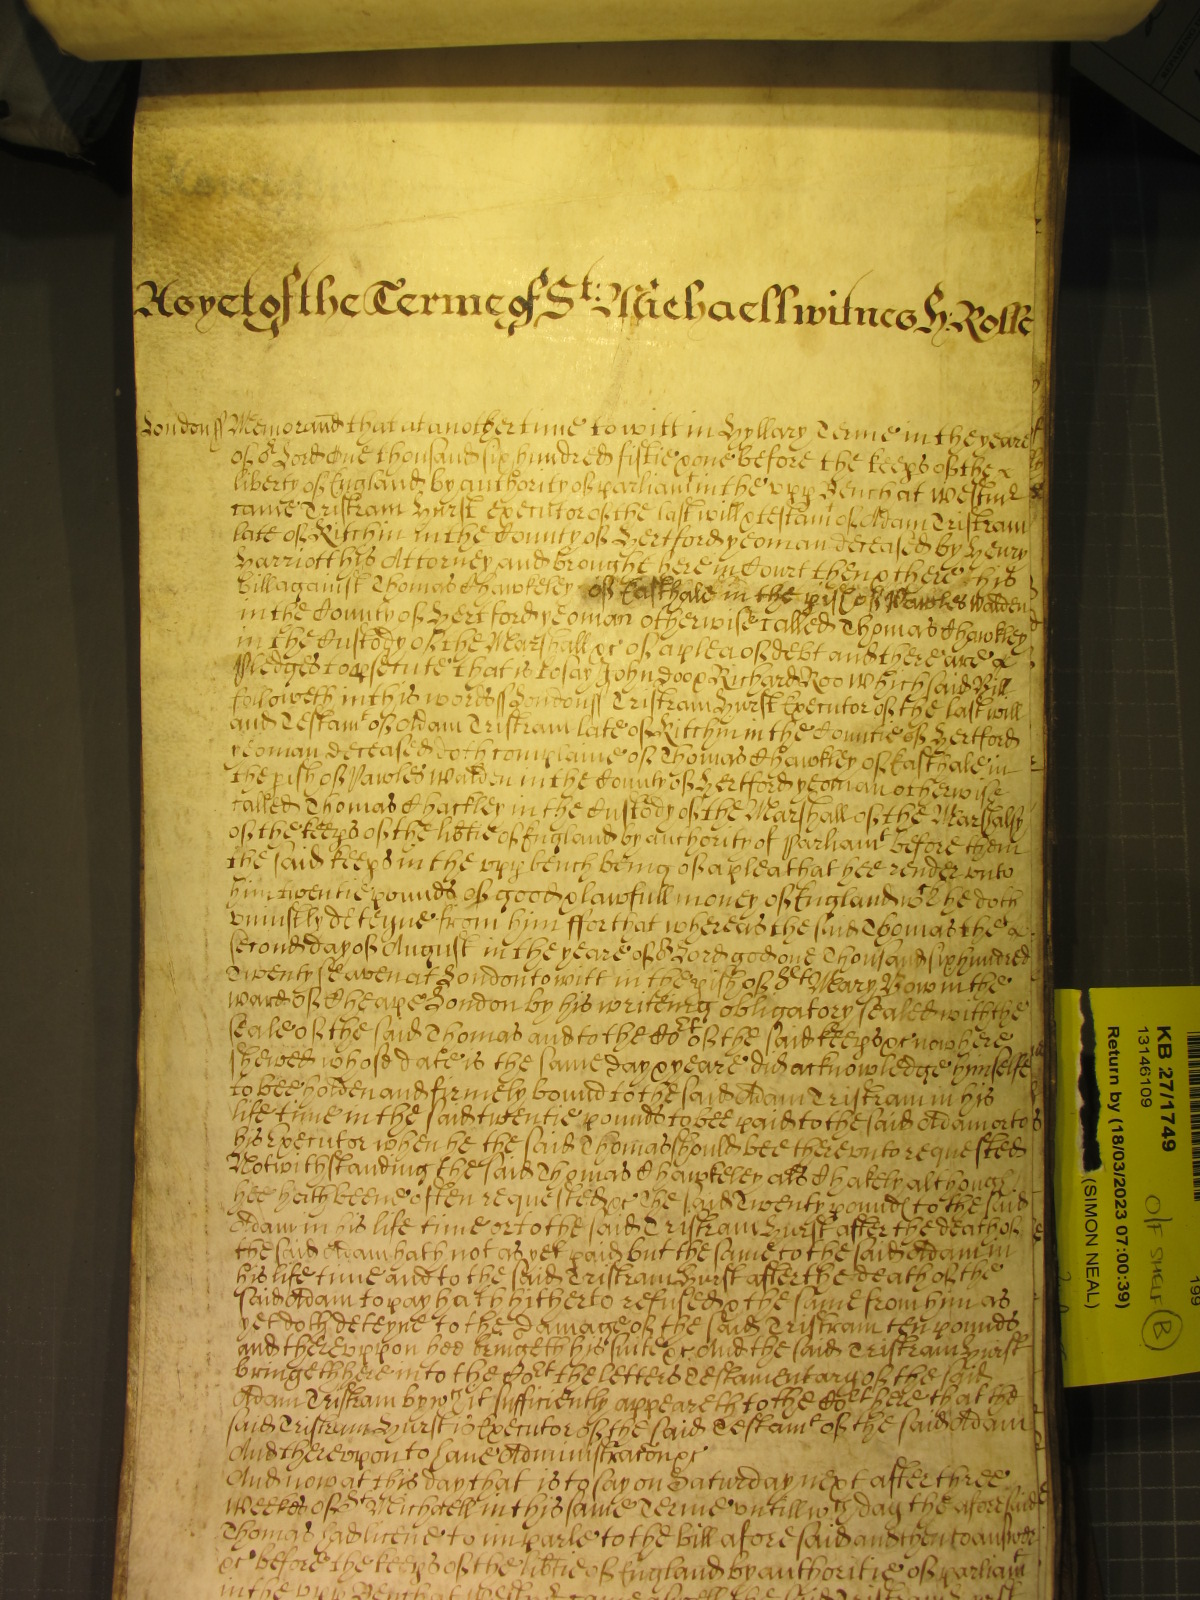 As yet of the Terme of St: Michaell witnes H: Rolle
London ss Memorand that at another time to witt in Hyllary Terme in the yeare
of or Lord One thousand six hundred fiftie & one before the keeps of the
liberty of England by authority of parliamt in the upp Bench at Westmr
came Tristram Hurst executor of the last will & testamt of Adam Tristram
late of Hitchin in the County of Hertford yeoman deceased by Henry
Harriott his Attorney and brought here in Court then & there his
Bill against Thomas Chawkeley of Easthale in the pish of Pawles Walden
in the County of Hertford yeoman otherwise called Thomas Chawkley
in the Custody of the Marshall &c of a plea of debt and there are
Pledges to psecute that is to say John Doo & Richard Roo which said Bill
followeth in this words ss London ss Tristram Hurst Executor of the last will
and Testamt of Adam Tristram late of Hitchin in the Countie of Hertford
yeoman deceased doth complaine of Thomas Chawkley of Easthale in
the pish of Pawles Walden in the County of Hertford yeoman otherwise
called Thomas Chackley in the Custody of the Marshall of the Marshally
of the keeps of the libtie of England by authority of Parliamt before them
the said keeps in the upp bench being of a plea that hee render unto
him twentie pounds of good & lawfull money of England wch he doth
uniustly deteyne from him ffor that whereas the said Thomas the
second day of August in the yeare of or Lord god one Thousand six hundred
Twenty seaven at London to witt in the pish of St Mary Bow in the
ward of Cheape London by his writeing obligatory sealed with the
seale of the said Thomas and to the Cort of the said keeps &c now here
shewed whose date is the same day & yeare did acknowledge hymselfe
to bee holden and firmely bound to the said Adam Tristram in his
life time in the said twentie pounds to bee paid to the said Adam or to
his Executor when he the said Thomas should bee thereunto requested
Notwithstanding the said Thomas Chawkeley als Chakely although
hee hath beene often requested &c The said Twenty pounds to the said
Adam in his life time or to the said Tristram Hurst after the death of
the said Adam hath not as yet paid but the same to the said Adam in
his life time and to the said Tristram Hurst after the death of the
said Adam to pay hath hitherto refused & the same from him as
yet doth deteyne to the Damage of the said Tristram ten pounds
and thereuppon hee bringeth his suite &c And the said Tristram Hurst
bringeth here into the Cort the letters Testamentary of the said
Adam Tristram by wch it sufficiently appeareth to the Cort here that the
said Tristram Hurst is Executor of the said Testamt of the said Adam
And thereupon to have Administracon &c
And now at this day that is to say on Saturday next after three
weekes of St Michaell in this same Terme untill wch day the aforesaid
Thomas had licence to imparle to the bill aforesaid and then to answer
&c before the keeps of the libtie of England by authoritie of parliamt
in the upp Bench at Westmr came aswell the said Tristram Hurst
KB 27/1749
13146109
Return by (18/03/2023 07:00:39)
(SIMON NEAL)
199
B